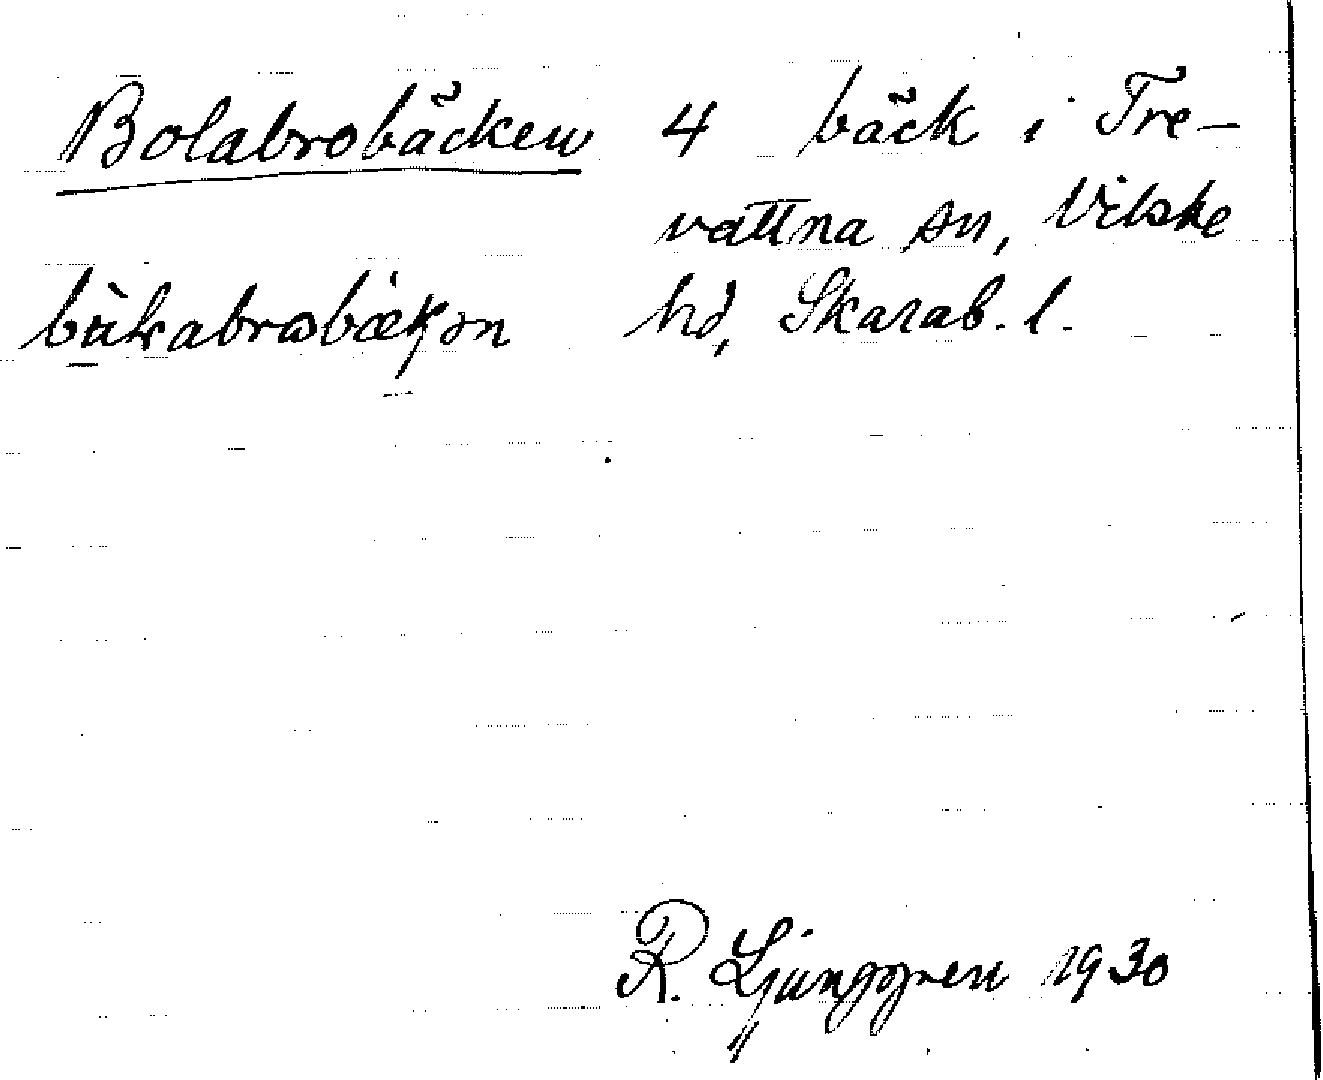 Bolabrobäcken 4 bäck i Tre-
vattna sn, Vilske
hd, Skarab. l.
R. Ljunggren 1930